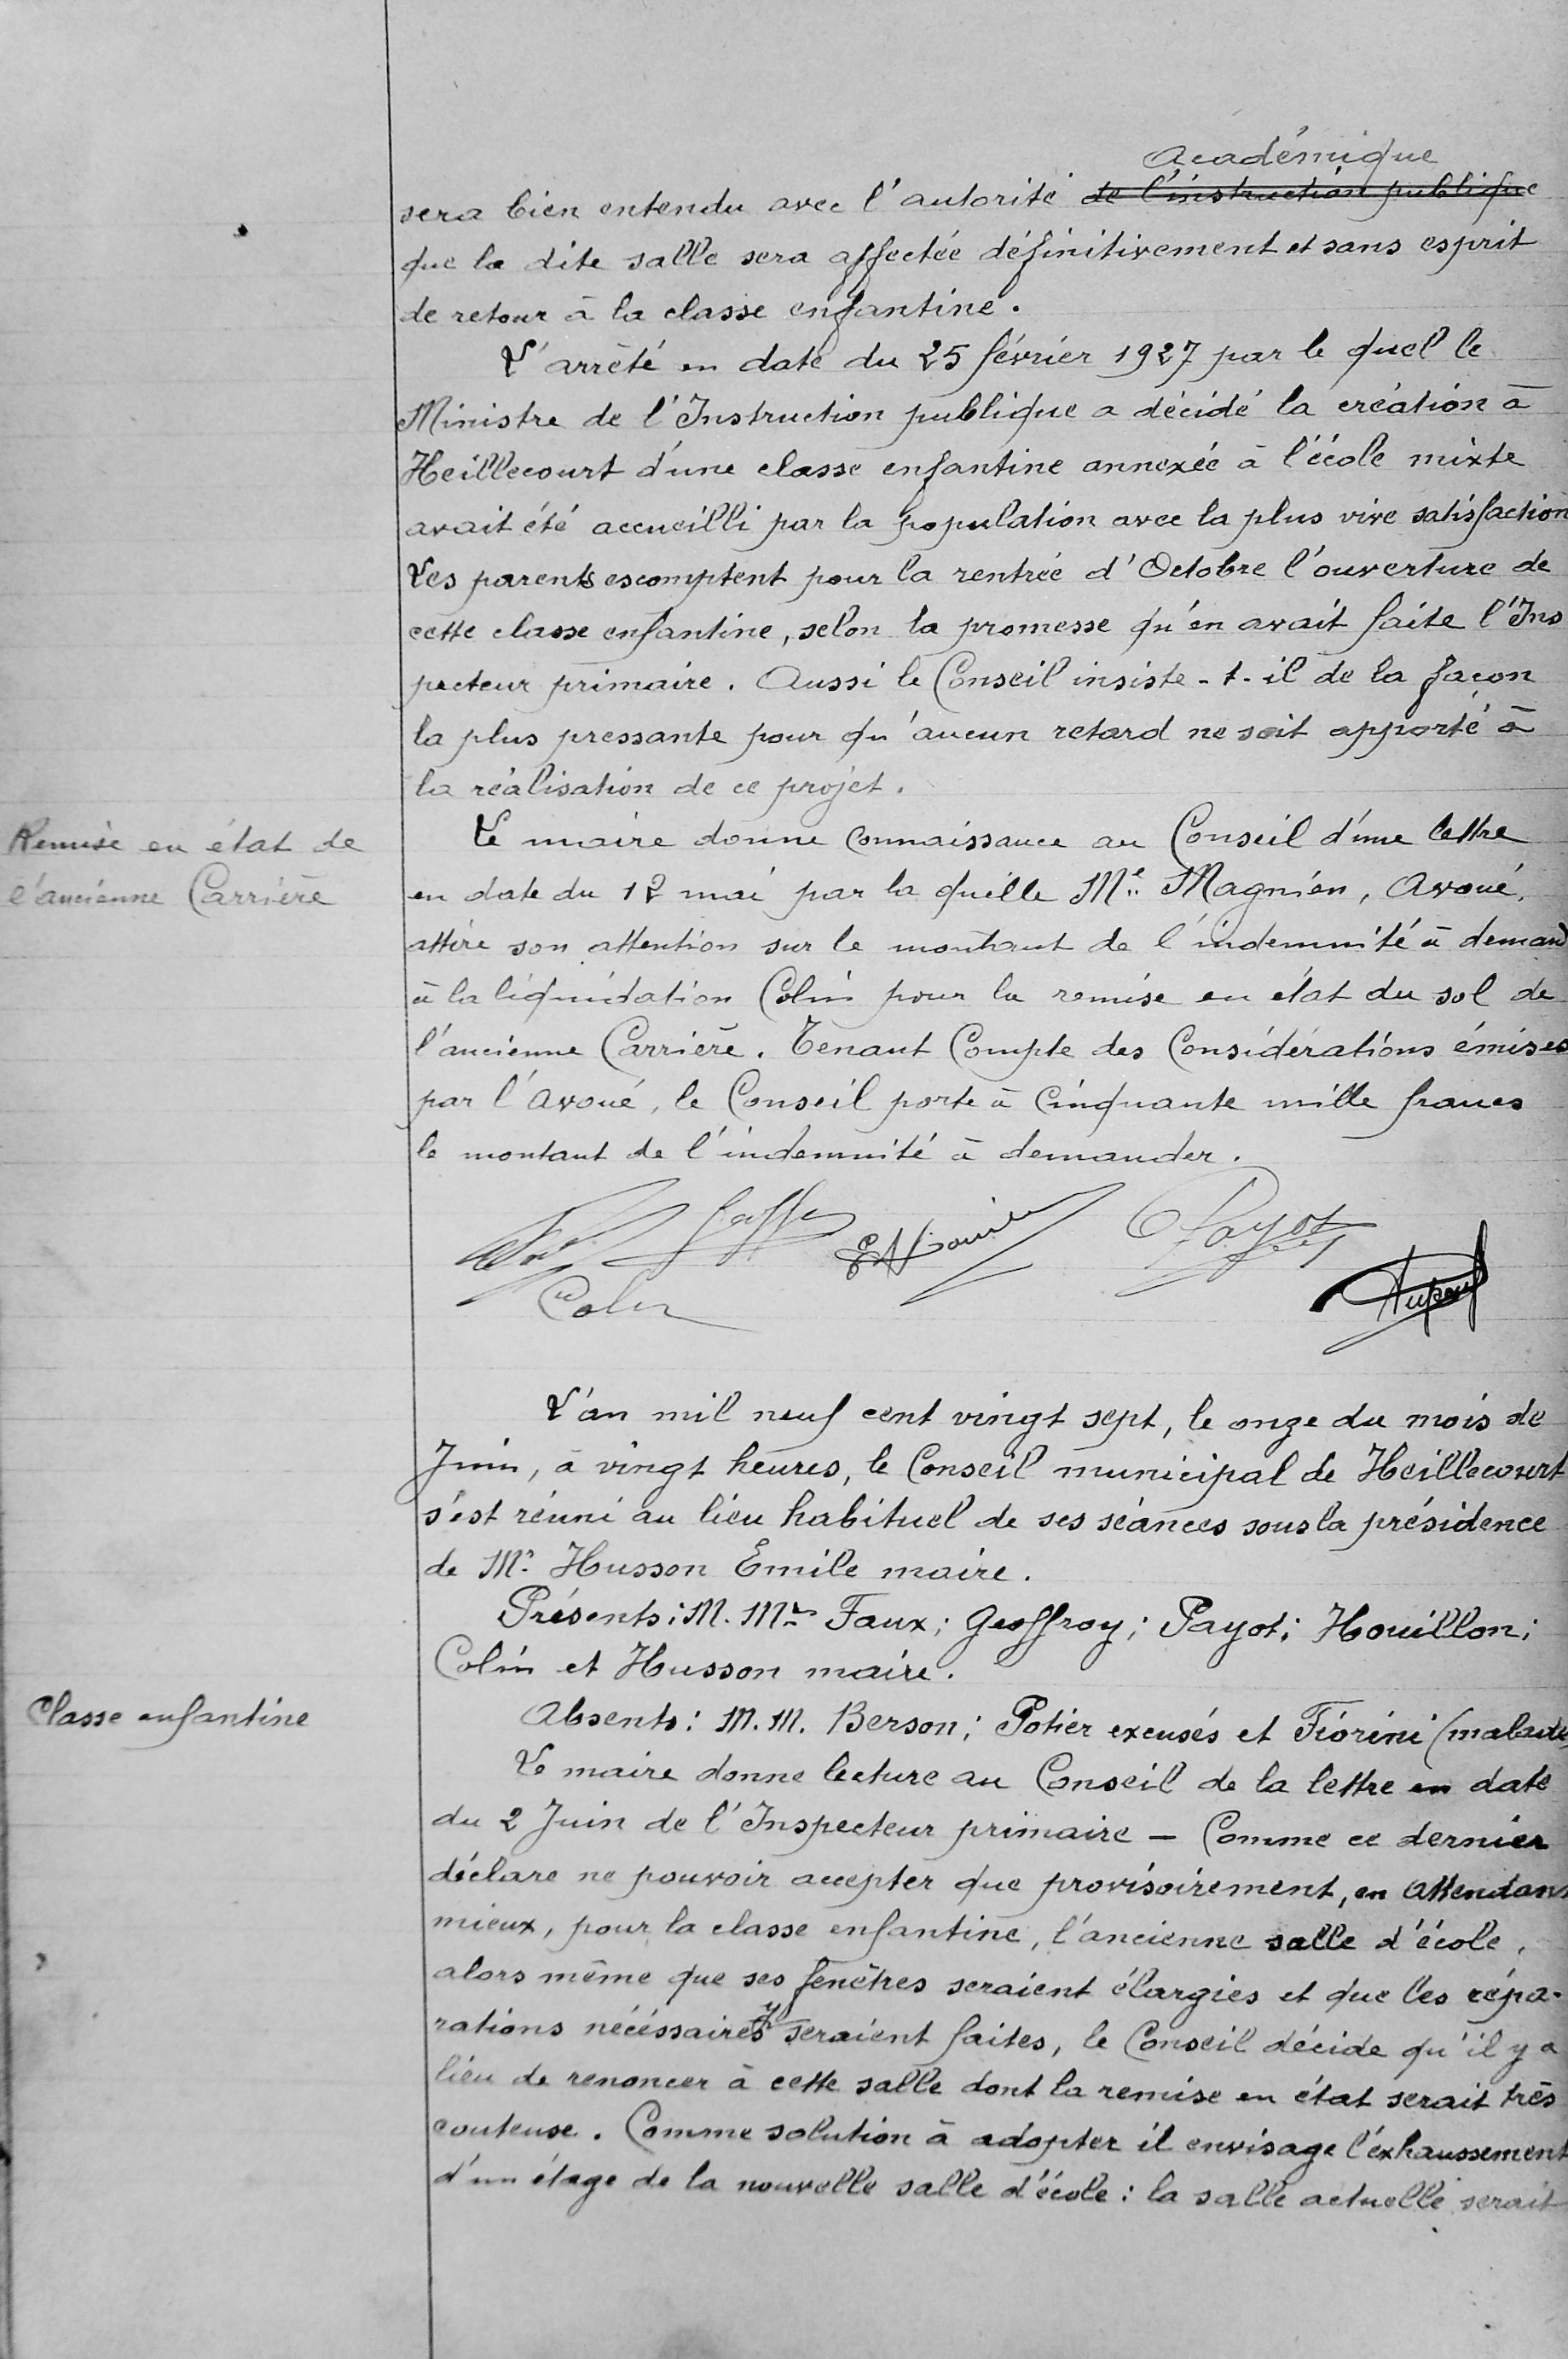 Académique
sera bien entendu avec l'autorité de l'instruction publique
que la dite salle sera affectée définitivement et sans esprit
de retour à la classe enfantine.
L'arrêté en date du 25 février 1927 par le quel le
Ministre de l'Instruction publique a décidé la création à
Heillecourt d'une classe enfantine annexée à l'école mixte
avait été accueilli par la population avec la plus vive satisfaction
Les parents escomptent pour la rentrée d'Octobre l'ouverture de
cette classe enfantine, selon la promesse qu'en avait faite l'Ins
pecteur primaire. Aussi le Conseil insiste-t-il de la façon
la plus pressante pour qu'aucun retard ne soit apporté à
la réalisation de ce projet.
Remise en état de
l'ancienne Carrière
Le maire donne connaissance au Conseil d'une lettre
en date du 12 mai par la quelle Me Magnien, Avoué,
attire son attention sur le montant de l'indemnité à demand
à la liquidation Colin pour la remise en état du sol de
l'ancienne Carrière. Tenant Compte des Considérations émises
par l'avoué, le Conseil porte à Cinquante mille francs
le montant de l'indemnité à demander.
Payot
Colin
L'an mil neuf cent vingt sept, le onze du mois de
Juin, à vingt heures, le Conseil municipal de Heillecourt
s'est réuni au lieu habituel de ses séances sous la présidence
de Mr Husson Emile maire.
Présents: M. Mrs Faux; Geoffroy; Payot; Houillon;
Colin et Husson maire.
Classe enfantine
Absents: M.M. Berson; Potier excusés et Fiorini (malade
Le maire donne lecture au Conseil de la lettre en date
du 2 Juin de l'Inspecteur primaire - Comme ce dernier
déclare ne pouvoir accepter que provisoirement, en attendant
mieux, pour la classe enfantine, l'ancienne salle d'école,
alors même que ses fenêtres seraient élargies et que les répa-
rations nécéssaires y seraient faites, le Conseil décide qu'il y a
lieu de renoncer à cette salle dont la remise en état serait très
couteuse. Comme solution à adopter il envisage l'exhaussement
d'un étage de la nouvelle salle d'école: la salle actuelle serait